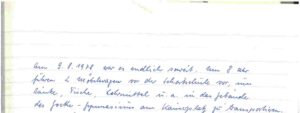 Am 9.8.1978 war es endlich soweit. Um 8 Uhr
fuhren 2 Möbelwagen vor der Schule vor, um
Bänke, Tische, Lehrmittel u. a. in das Gebäude
des Goethe-Gymnasiums am zu transportieren